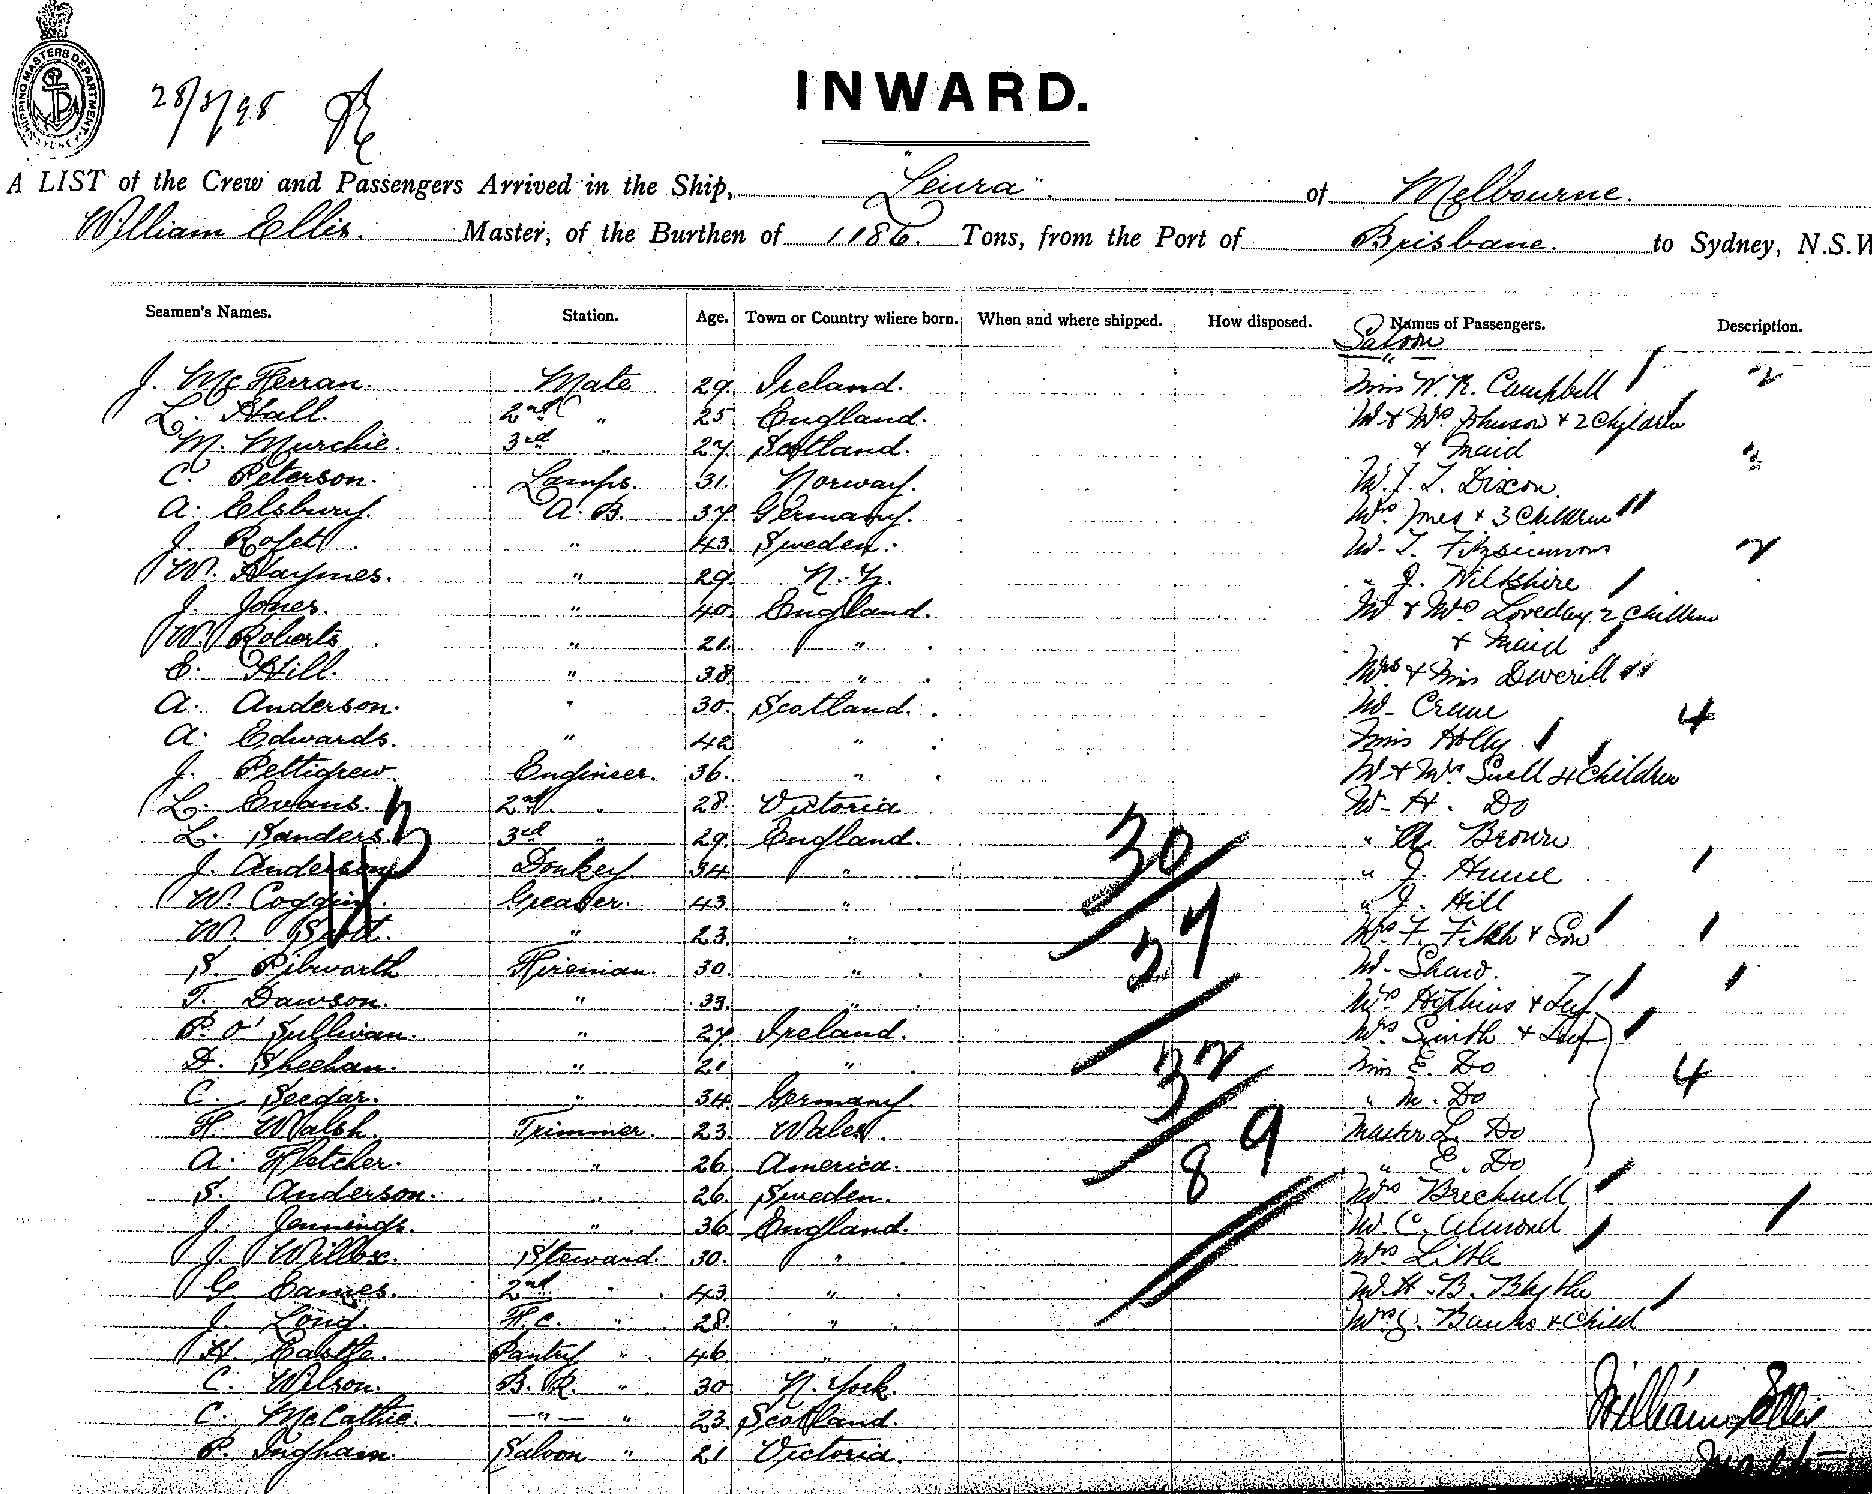 SHIPPING MASTERS DEPARTMENT. SYDNEY
28/3/98
INWARD.
A LIST of the Crew and Passengers Arrived in the Ship, "Leura" of Melbourne.
William Ellis. Master, of the Burthen of 1186. Tons, from the Port of Brisbane. to Sydney, N.S.W
Seamen's Names. Station. Age. Town or Country where born. When and where shipped. How disposed. Names of Passengers. Description.
Saloon
J. McFerran. Mate 29. Ireland. Miss W. R. Campbell 2
L. Hall. 2nd " 25. England. Mr & Mrs Johnson & 2 Children
M. Murchie. 3rd " 27. Scotland. & Maid 2
C. Peterson. Lamps. 31. Norway. Mr J. T. Dixon.
A. Elsbury. A. B. 37. Germany. Mrs Jones & 3 Children
J. " 43. Sweden. Mr T. Fitzsimmons 2
W. Haymes. " 29. N. Z. " J. Wiltshire
J. Jones. " 40. England. Mr & Mrs Loveday 2 Children
W. Roberts " 21. " & Maid
E. Hill. " 38. " Mrs & Miss Deverill
A. Anderson. " 30. Scotland. Mr 4
A. Edwards. " 42. " Miss Holly
J. Pettigrew. Engineer. 36. " Mr & Mrs Snell 4 Children
L. Evans. 2nd " 28. Victoria Mr H. Do
L. Sanders. 3rd " 29. England. " A. Brown
30
J. Anderson Donkey 34. " " J. Hume
W. Coggin. Greaser. 43. " " J. Hill
W. Scott. " 23. " Mrs F. & Son
27
S. Pibworth Fireman. 30. " Mr Shaw.
T. Dawson. " 33. " Mrs Hopkins & Inf
P. O'Sullivan. " 27. Ireland. Mrs Smith & Inf
D. Sheehan. " 21 " Miss E. Do 4
32
C. Seedar. " 34. Germany. " M. Do
H. Walsh. Trimmer. 23. Wales. Master L. Do
A. Fletcher. " 26. America. " E. Do
89
S. Anderson. " 26. Sweden. Mrs Brecknell
J. Jennings. " 36. England. Mr C. Almond
J. Willox. Steward. 30. " Mrs Little
G. Eames. 2nd " 43. " Mr H. B. Blythe
J. Long. F.C. " 28. " Mrs J. Banks & Child
H. Pantry " 46 "
C. Wilson. B. R. " 30 N. York.
C. McCathie. " " 23. Scotland. William Ellis
P. Ingham. Saloon " 21 Victoria. Master